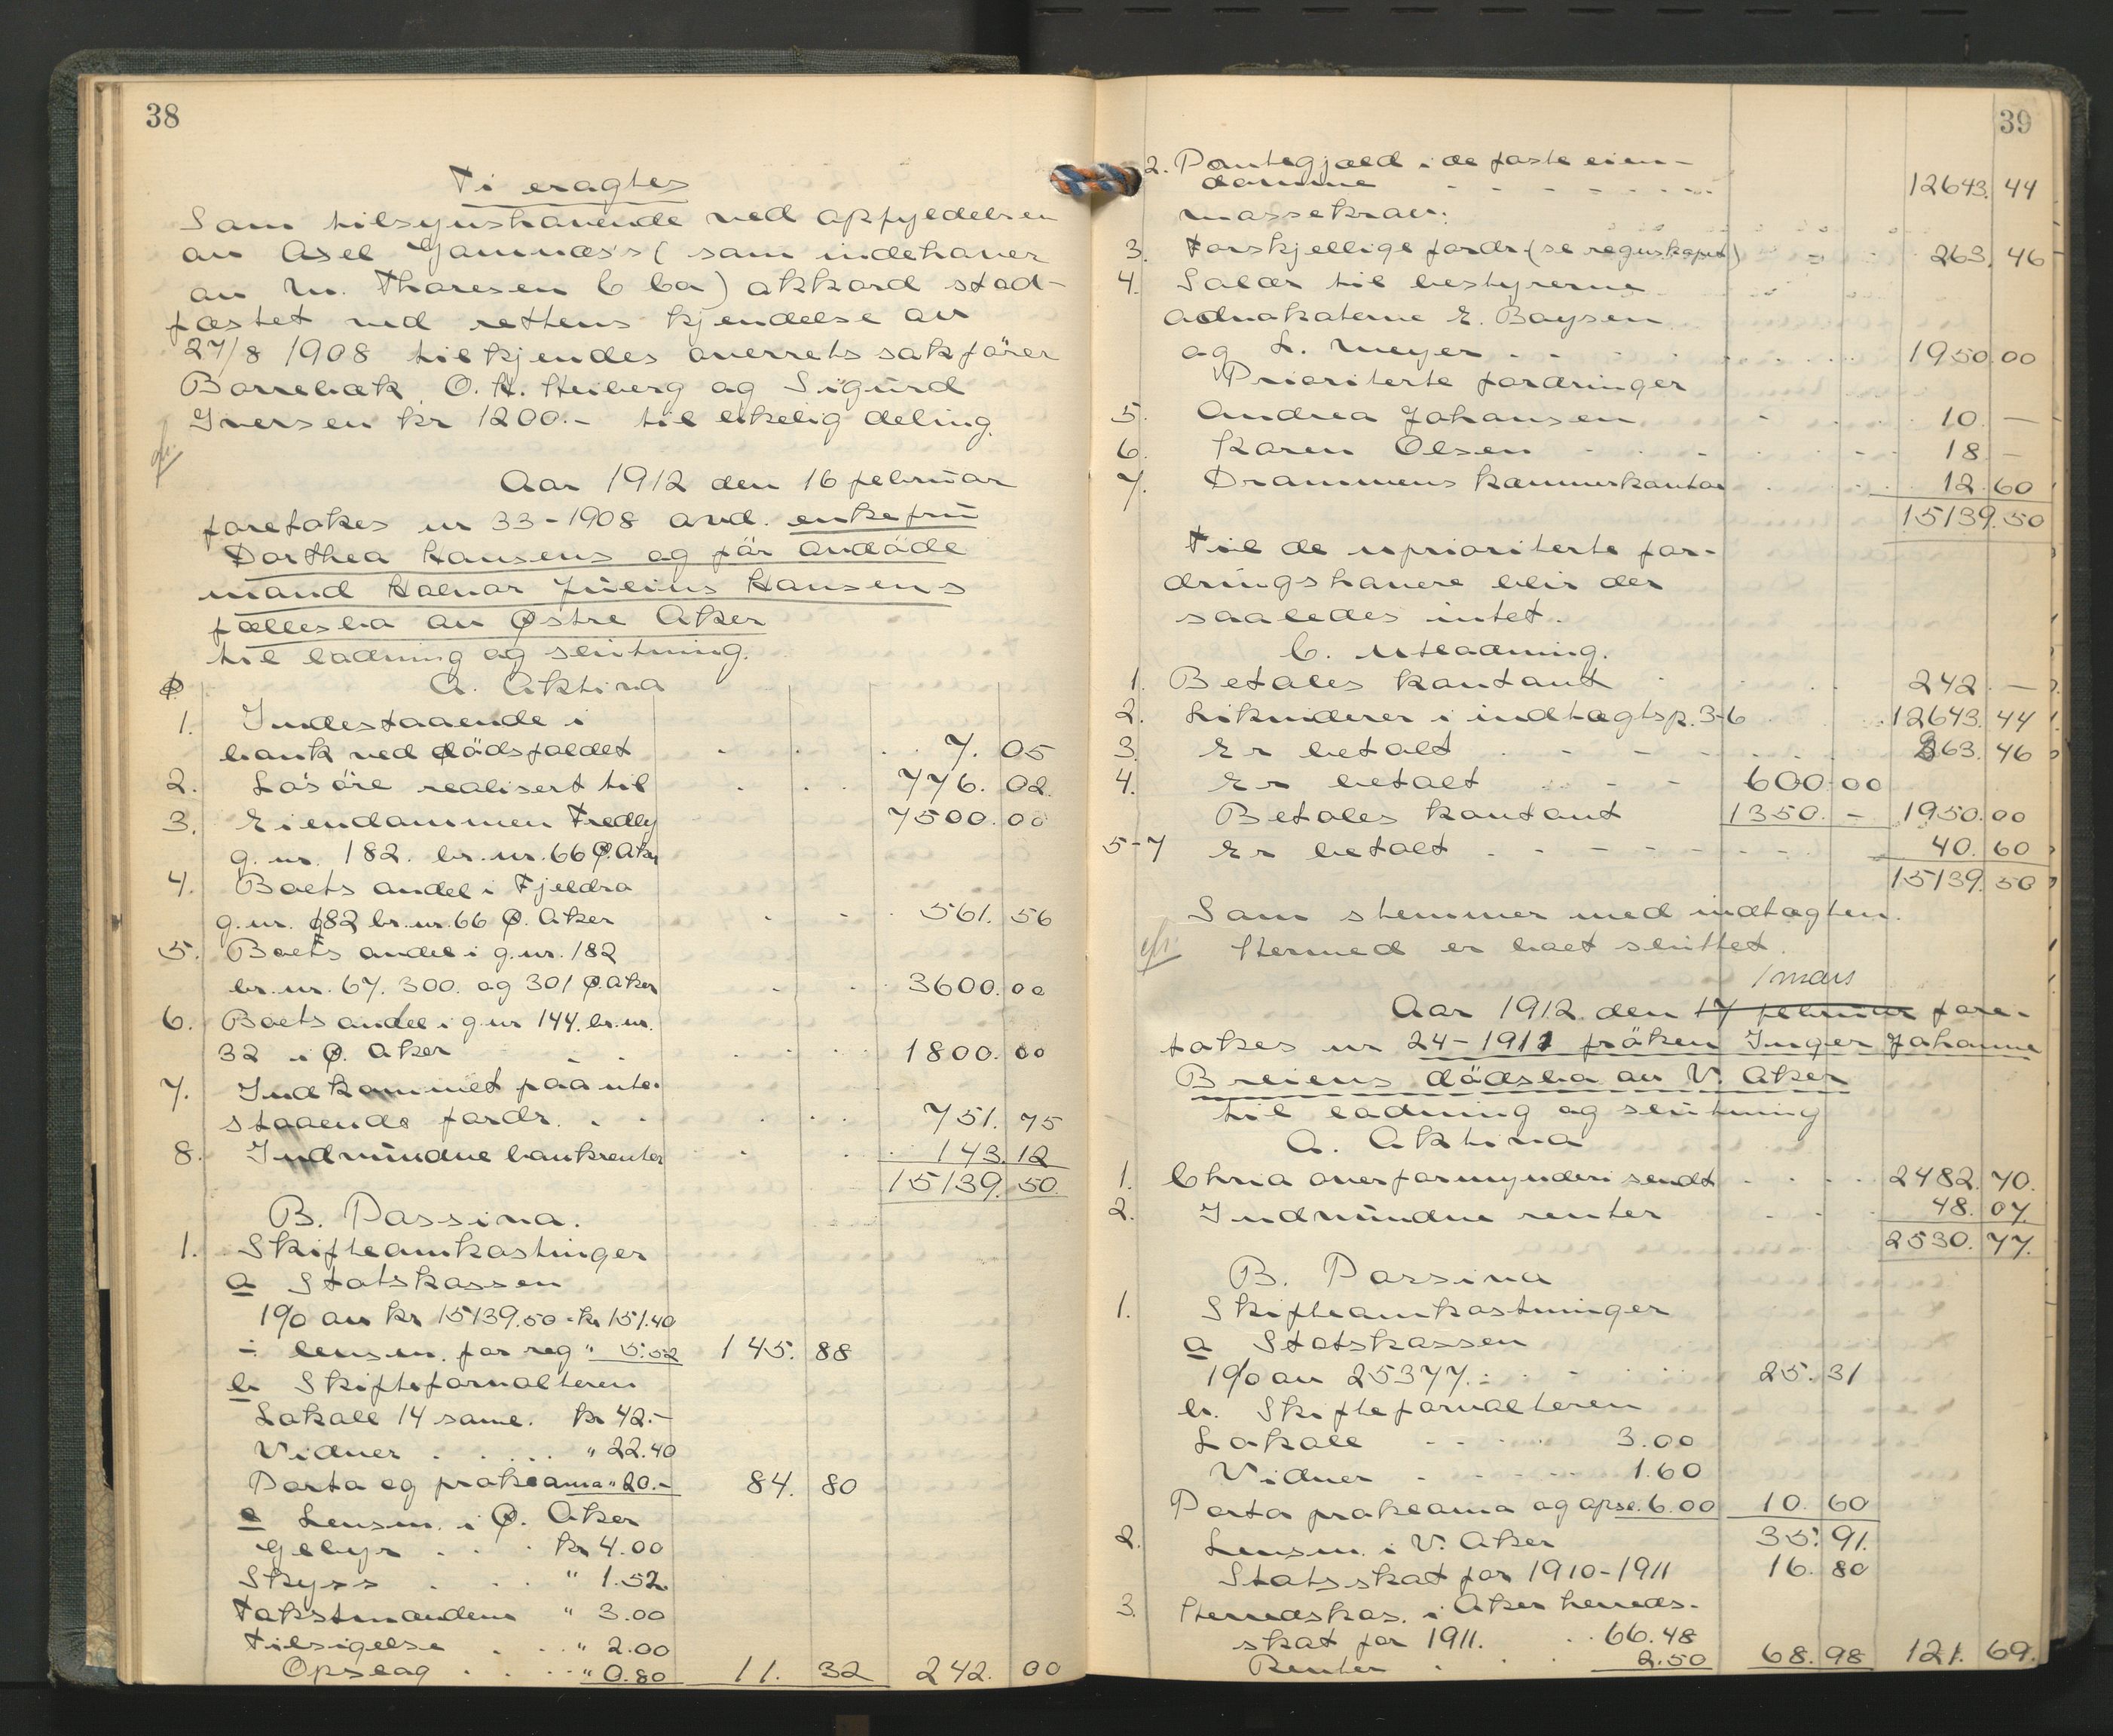 38
Ti eragtes
Som tilsynshavende ved opfyldelsen
av Axel Gamnæs's (som indehaver
av M. Thoresen & Co) akkord stad-
fæstet ved rettens kjendelse av
27/8 1908 tilkjendes overrets sakfører
Borrebæk, O. H. Heiberg og Sigurd
Iversen kr 1200.- til likelig deling.
Aar 1912 den 16 februar
foretokes nr 33-1908 avd. enkefru
Dorthea Hansens og før avdøde
mand Halvor Julius Hansens
fællesbo av Østre Aker
til lodning og slutning.
A. Aktiva
1. Indestaaende i
bank ved dødsfaldet 7. 05
2. Løsøre realisert til 776. 02
3. Eiendommen Fredly 7500. 00
g. nr. 182. br. nr. 66 Ø. Aker
4. Boets andel i Fjeldro
g. nr. 182 br. nr. 66 Ø. Aker 561. 56
5. Boets andel i g. nr. 182
br. nr. 67. 300. og 301 Ø. Aker 3600. 00
6. Boets andel i g. nr 144. br. nr.
32 i Ø. Aker 1800. 00
7. Indkommet paa ute-
staaende fordr. 751. 75
8. Indvundne bankrenter 143. 12
15139. 50
B. Passiva.
1. Skifteomkostninger
a Statskassen
1% av kr 15139.50 - kr 151.40
÷ lensm. for reg " 5.52 145. 88
b Skifteforvalteren
Lokale 14 saml. kr 42.-
Vidner " 22.40
Porto og proklama " 20.- 84. 80
c Lensm. i Ø. Aker
Gebyr kr 4.00
Skyss " 1.52
Takstmændene " 3.00
Tilsigelse " 2.00
Opslag " 0.80 11. 32 242. 00
39
2. Pantegjæld i de faste eien-
domme 12643. 44
massekrav:
3. Forskjellige fordr. (se regnskapet) 263. 46
4. Salær til bestyrerne
advokaterne E. Boysen
og L. Meyer 1950. 00
Prioriterte fordringer
5. Andrea Johansen 10. —
6. Karen Olsen 18 —
7. Drammens kæmnerkontor 12. 60
15139. 50
Til de uprioriterte for-
dringshavere blir der
saaledes intet.
C. Utlodning.
1. Betales kontant 242. —
2. Likviderer i indtægtsp. 3-6 12643. 44
3. Er betalt 263. 46
4. Er betalt 600. 00
Betales kontant 1350. - 1950. 00
5-7 Er betalt 40. 60
15139. 50
Som stemmer med indtægten.
Hermed er boet sluttet.
1 mars
Aar 1912 den 17 februar fore-
tokes nr 24-1911 frøken Inger Johanne
Breiens dødsbo av V. Aker
til lodning og slutning
A. Aktiva
1. Chria overformynderi sendt 2482. 70.
2. Indvundne renter 48. 07.
2530. 77.
B. Passiva
1. Skifteomkostninger
a Statskassen
1% av 2530.77. 25. 31
b. Skifteforvalteren
Lokale 3.00
Vidner 1.60
Porto proklama og opsl. 6.00 10. 60
35. 91.
2. Lensm. i V. Aker
Statsskat for 1910-1911 16. 80
3. Herredskas. i Aker herreds-
skat for 1911. 66.48
Renter 2.50 68. 98 121. 69.